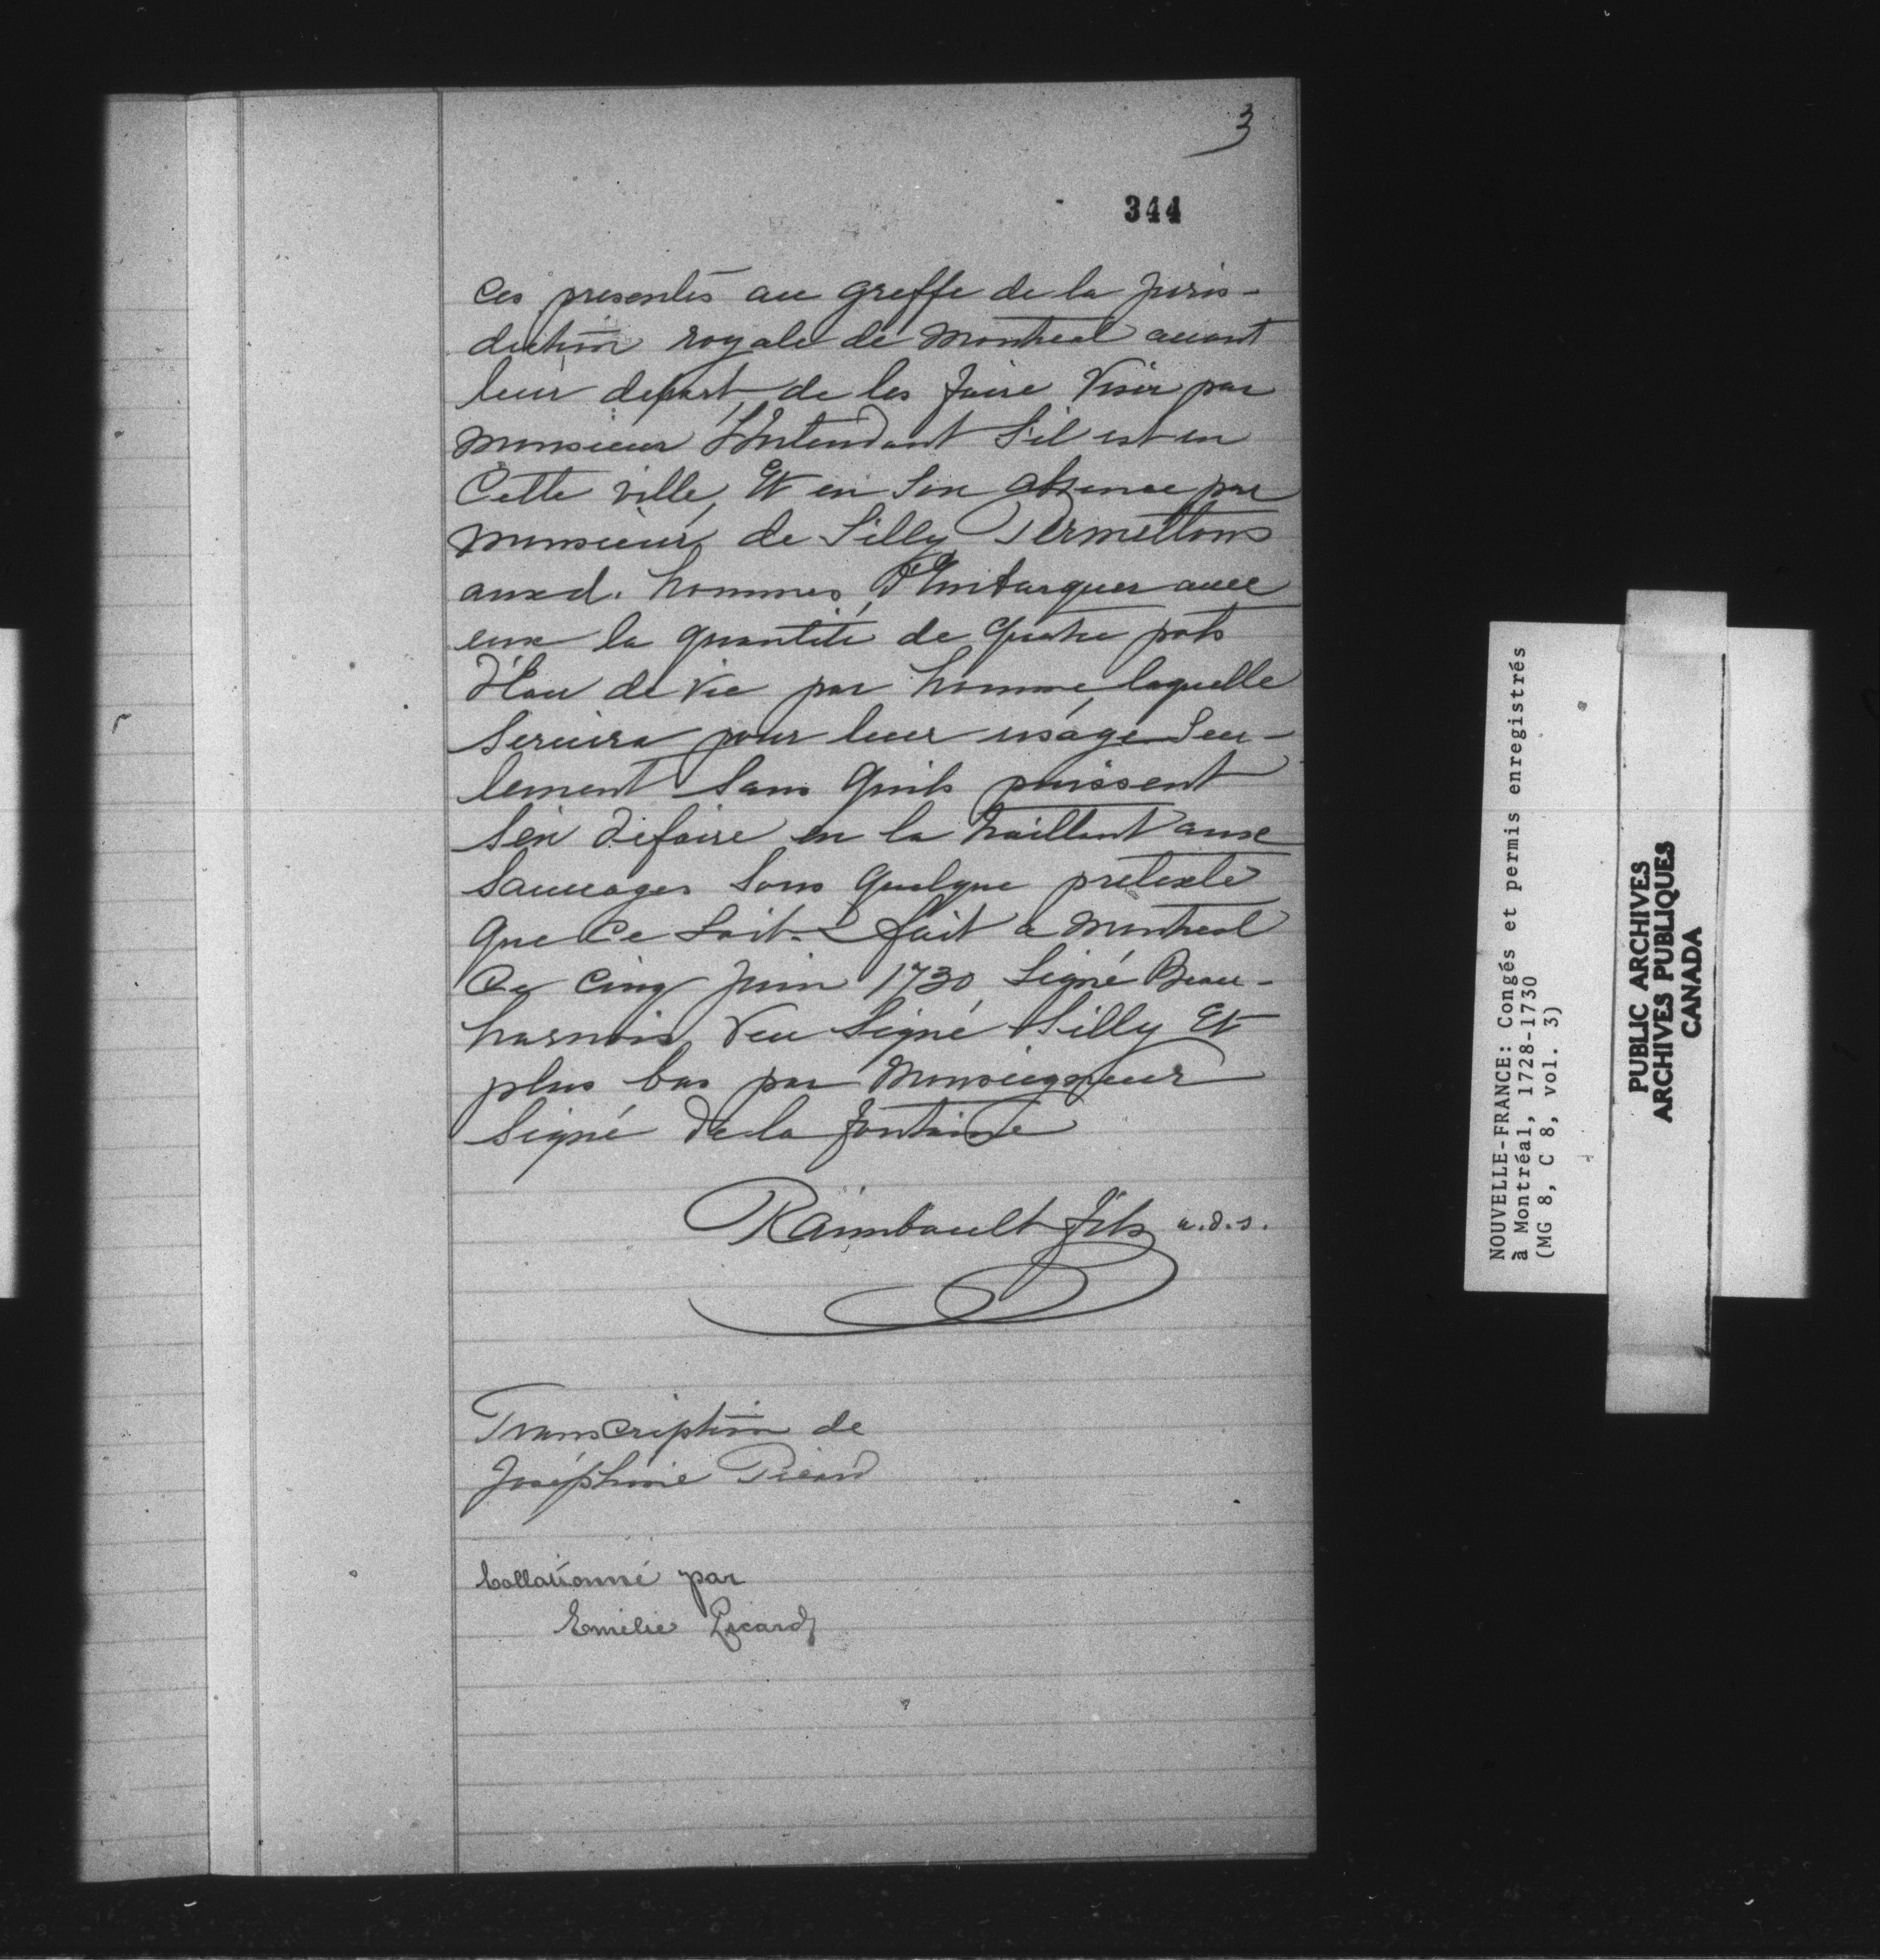 3
344
Ces presentes au greffe de la Juris-
diction royale de Montreal auant
leur depart, de les faire Viser par
monsieur L'Intendant S'il est en
Cette ville, Et en Son absence par
monsieur de Silly Permettons
auxd. hommes d'Embarquer auec
eux la quantité de quatre pots
d'Eau de vie par homme, laquelle
Seruira pour leur usage Seu-
lement Sans quils puissent
S'en défaire en la traittant aux
Sauuages Sous quelque pretexte
que Ce Soit. fait a Montreal
Ce Cinq Juin 1730 Signé Beau-
harnois, Veu Signé Silly Et
plus bas par Monseigneur
Signé De la fontaine
Raimbault fils
Transcription de
Joséphine Picard
Collationné par
Emélie Picard
NOUVELLE-FRANCE: Congés et permis enregistrés
à Montréal, 1728-1730
(MG 8, C 8, vol. 3)
PUBLIC ARCHIVES
ARCHIVES PUBLIQUES
CANADA